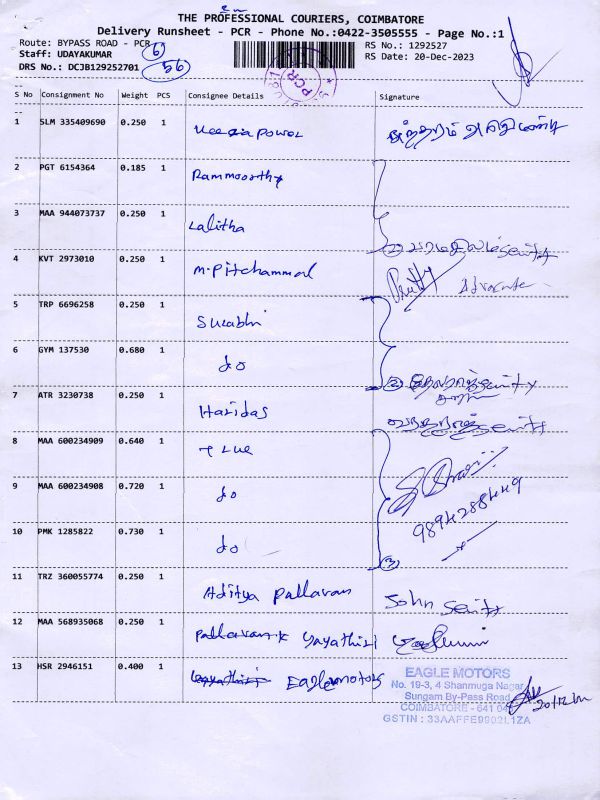 THE PROFESSIONAL COURIERS, COIMBATORE
Delivery Runsheet - PCR - Phone No.:0422-3505555 - Page No.:1
Route: BYPASS ROAD - PCR 6
RS No.: 1292527
Staff: UDAYAKUMAR
RS Date: 20-Dec-2023
DRS No.: DCJB129252701 56
PCR
S No Consignment No Weight PCS Consignee Details Signature
1 SLM 335409690 0.250 1
2 PGT 6154364 0.185 1 Rammoorthy
3 MAA 944073737 0.250 1 Lalitha
4 KVT 2973010 0.250 1 M. Pitchammal Advocate
5 TRP 6696258 0.250 1 Surabhi
6 GYM 137530 0.680 1 do
7 ATR 3230738 0.250 1 Haridas
8 MAA 600234909 0.640 1
9 MAA 600234908 0.720 1 do
9894288449
10 PMK 1285822 0.730 1 do
3
11 TRZ 360055774 0.250 1 Aditya Pallavan John
12 MAA 568935068 0.250 1 Yayathiri
13 HSR 2946151 0.400 1 Eagle motors
EAGLE MOTORS
No. 19-3, 4 Shanmuga Nagar,
Sungam By-Pass Road
COIMBATORE - 641 04
GSTIN : 33AAFFE9902L1ZA